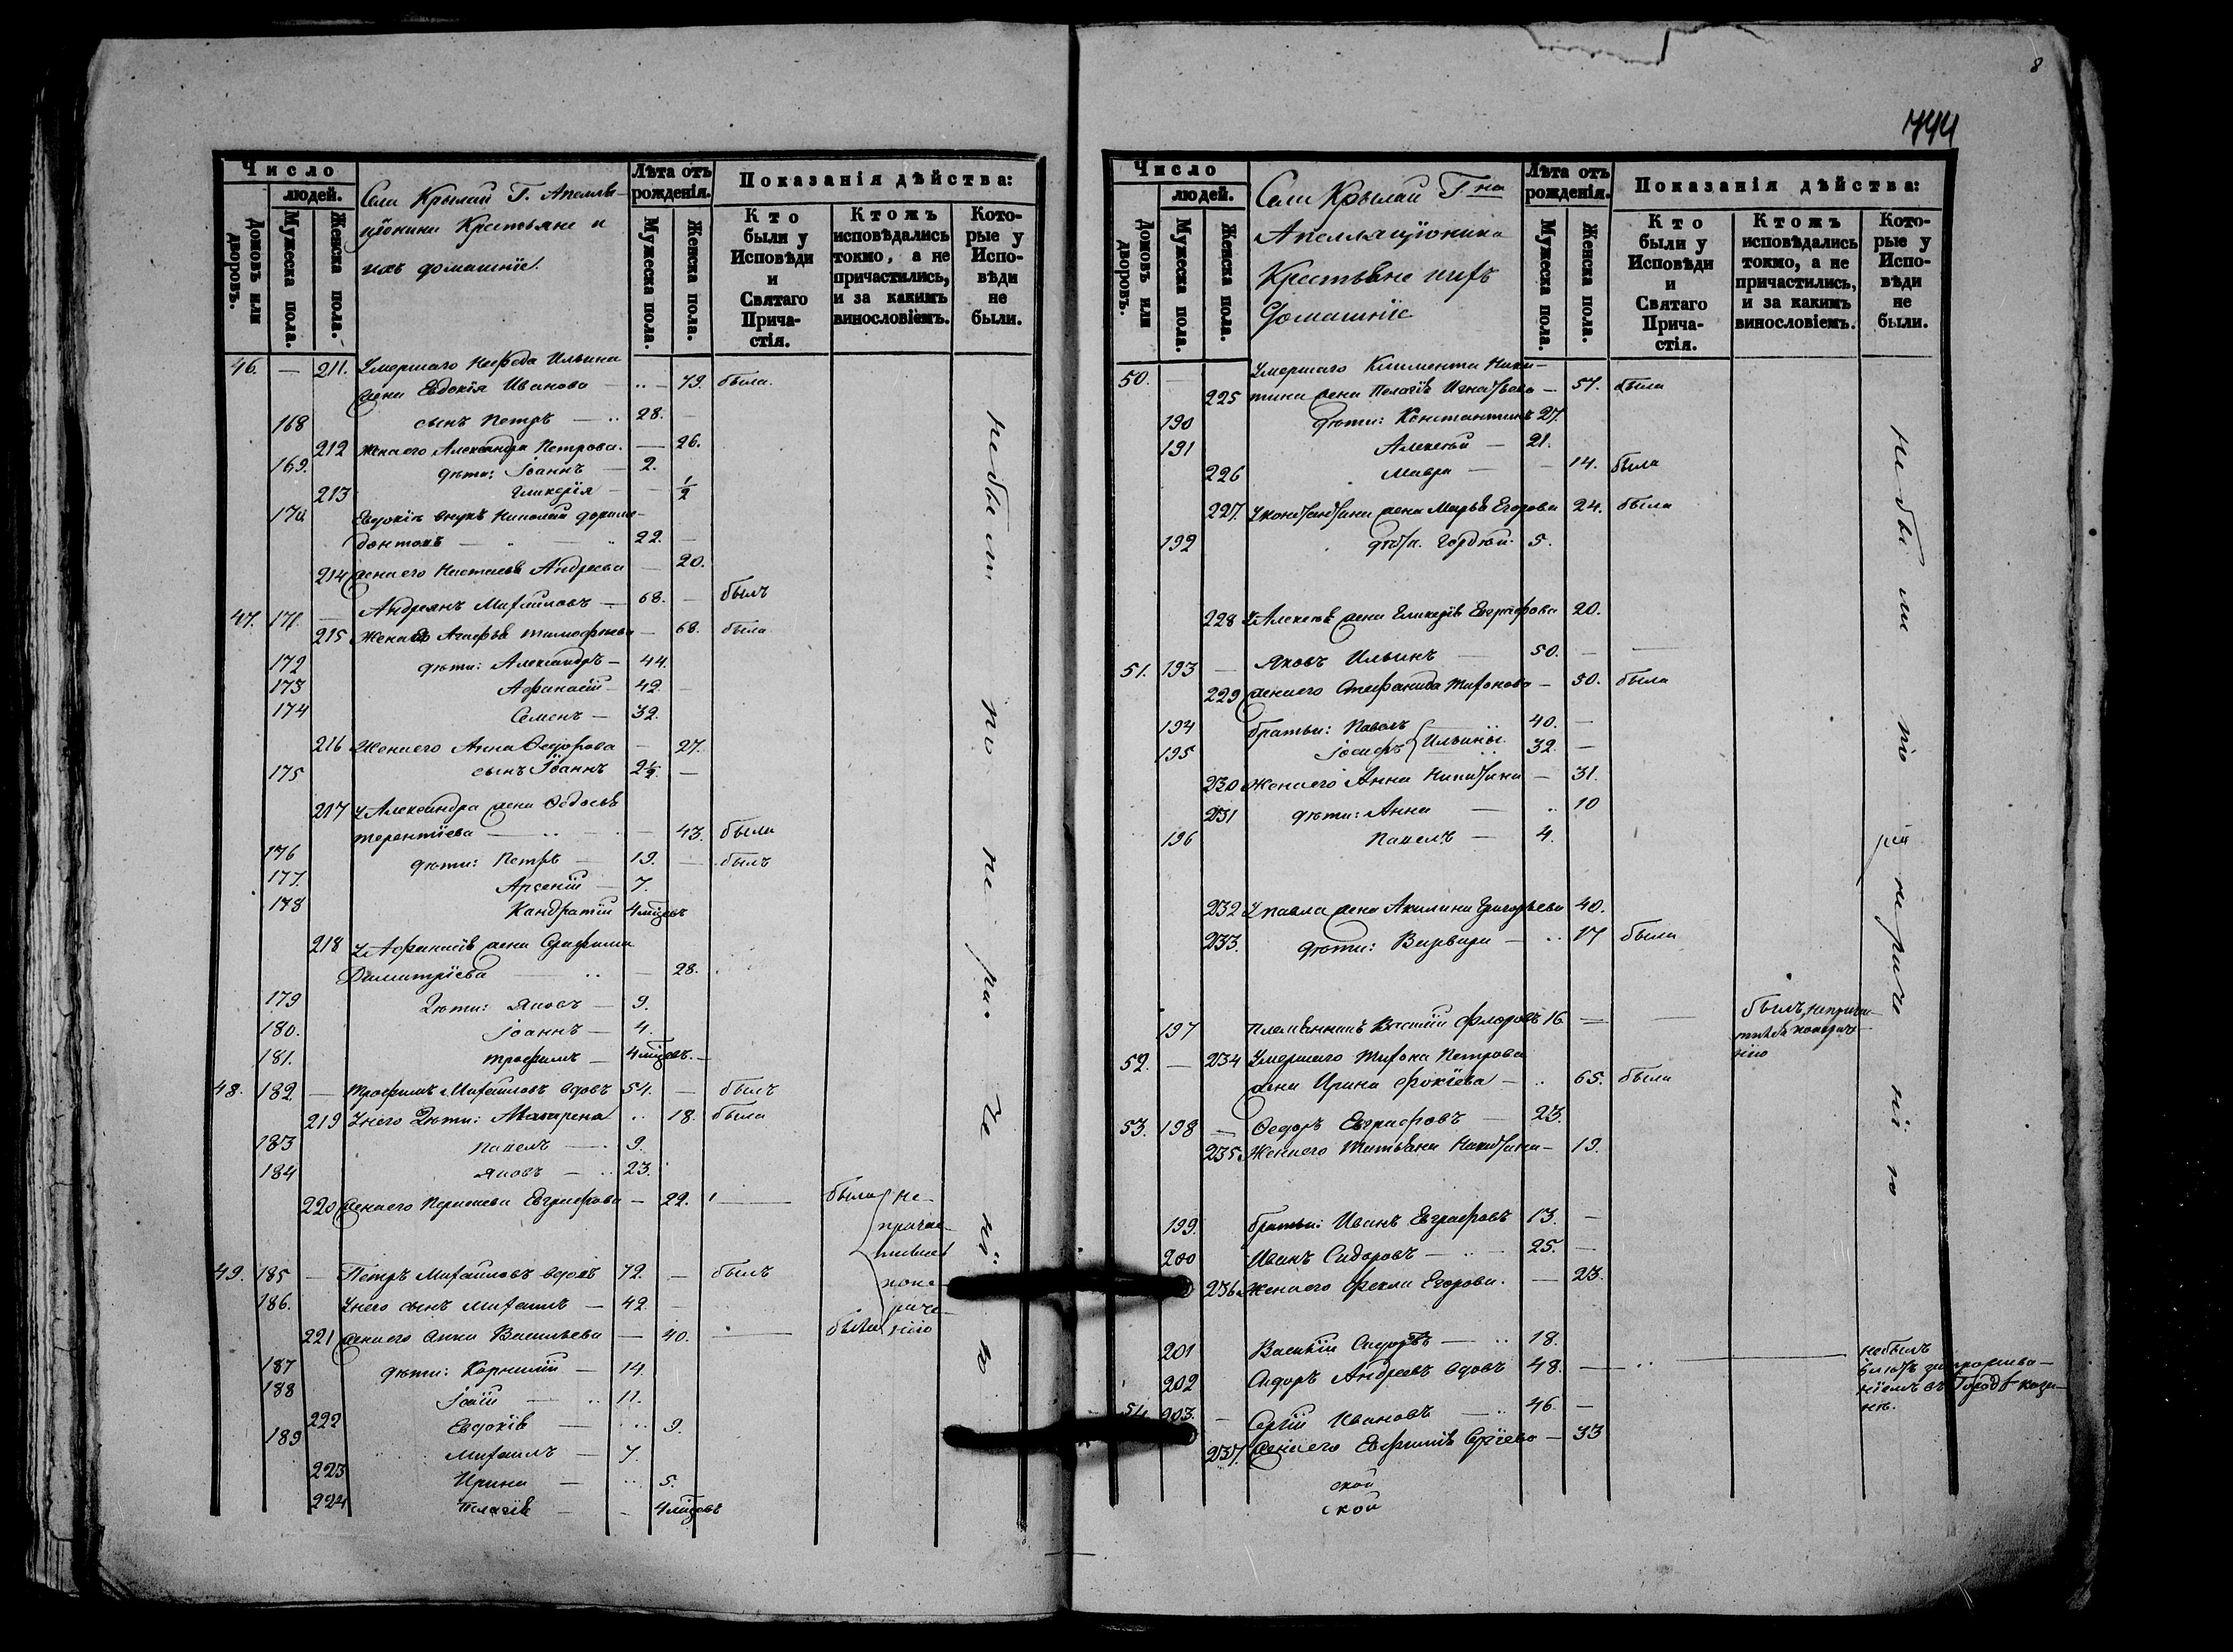 Число
людей.
Домовъ или дворовъ.
Мужеска пола.
Женска пола.
Села Крылай Г. Апелля-
ціонина Крестьяне и
ихъ домашніе.
Лѣта отъ рожденія.
Мужеска пола.
Женска пола.
Показанія дѣйства:
Кто были у Исповѣди и Святаго Прича-стія.
Ктожъ исповѣдались токмо, а не причастились, и за какимъ винословіемъ.
Кото-рые у Испо-вѣди не были.
46. — 211. Умершаго Нефеда Ильина
жена Евдокія Иванова — 79. была.
168 сынъ Петръ — 28. —
212 Жена его Александра Петрова. — 26.
169. дѣти: Іоаннъ — 2.
213 Гликерія — — 1/2
170. Евдокіи внукъ Николай
22. —
214 жена его Настасья Андреева — 20.
47. 171 — Андреянъ Михайловъ — 68. — былъ
215 Жена Агафья Тимофеева — 68. была
172 дѣти: Александръ — 44.
173 Афанасій — 42. —
174 Семенъ — 32.
216 Жена его Анна Ѳедорова — 27.
175 сынъ Іоаннъ 2 1/2. —
217 У Александра жена Ѳедосья
Терентіева — 43. была
176 дѣти: Петръ — 19. — былъ
177. Арсеній — 7.
178 Кандратій 4 мѣсяцъ
218 У Афанасія жена Серафима
Димитріева — 28.
179 Дѣти: Яковъ — 9.
180. Іоаннъ — 4.
181. Трофимъ — 4 мѣсяцъ. —
48. 182 — Трофимъ Михайловъ вдовъ 54. — былъ
219 У него Дѣти: Матрена .. 18. была
183 Павелъ — 9.
184 Яковъ — .. 23.
220 Жена его Евграфова — 22. — была не
причас-
тилась
49. 185 — Петръ Михайловъ вдовъ 72. — былъ
186. У него сынъ Михаилъ — 42. —
221 жена его Анна Васильева — 40. — была
по не-
раче-
нію
187 дѣти: Корнилій — 14.
188 — .. 11.
222 Евдокія — .. 9.
189 Михаилъ — 7.
223 Ирина — .. 5.
224 Пелагія — - 4 мѣсяцъ
не были по нераченію
8
744
Число
людей.
Домовъ или дворовъ.
Мужеска пола.
Женска пола.
Села Крылай Г на
Апелляціонина
Крестьяне ихъ
Домашніе
Лѣта отъ рожденія.
Мужеска пола.
Женска пола.
Показанія дѣйства:
Кто были у Исповѣди и Святаго Прича-стія.
Ктожъ исповѣдались токмо, а не причастились, и за какимъ винословіемъ.
Кото-рые у Испо-вѣди не были.
50. — Умершаго Климента Ники-
225 тина жена Пелагія Игнатьева — 57. была
190 Дѣти: Константинъ 27.
191 Алексѣй — 21.
226 Мавра — — 14. была
227. У Константина жена Марья Егорова 24. была
192 дѣти. Гордѣй 5.
228 У Алексѣя жена Гликерія Евграфова 20.
51. 193 — Яковъ Ильинъ — 50. —
229 жена его Степанида Тихонова — 50. была
194 братья: Павелъ 40. —
195 Іосифъ Ильины. 32. —
230 Жена его Анна Никитина — 31.
231 дѣти: Анна — .. 10
196 Павелъ — 4.
232 У Павла жена Акилина Григорьева 40.
233. дѣти: Варвара — .. 17 была
197 Племянникъ Василій Флоровъ 16 — былъ, не причас-
тился по нераче-
нію
52. — 234 Умершаго Тихона Петрова
жена Ирина Фокіева — .. 65. была
53. 198 — Ѳедоръ Евграфовъ — 23.
235 Жена его Татьяна Никитина — 19.
199. братья: Иванъ Евграфовъ 13. —
200 Иванъ Сидоровъ — .. 25. —
236 Жена его Фекла Егорова. — 23.
201 Василій Сидоровъ — .. 18.
202 Сидоръ Андреевъ вдовъ 48. — .. не былъ
въ Городѣ Каза-
нѣ.
54. 203. — Сергій Ивановъ — .. 46. —
237. жена его Евфимія Сергіева — 33
ской
ской
не были по нераченію